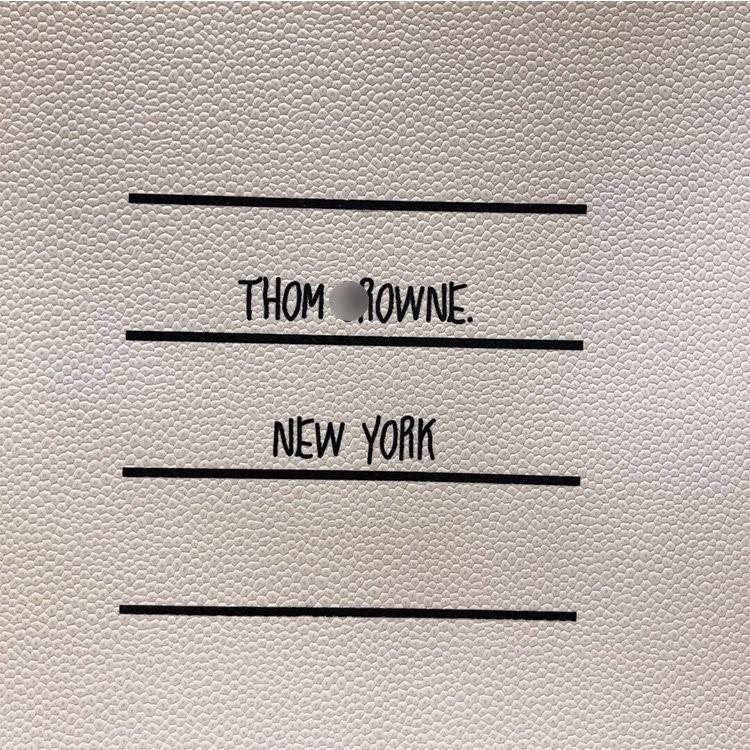 THOM ROWNE.
NEW YORK